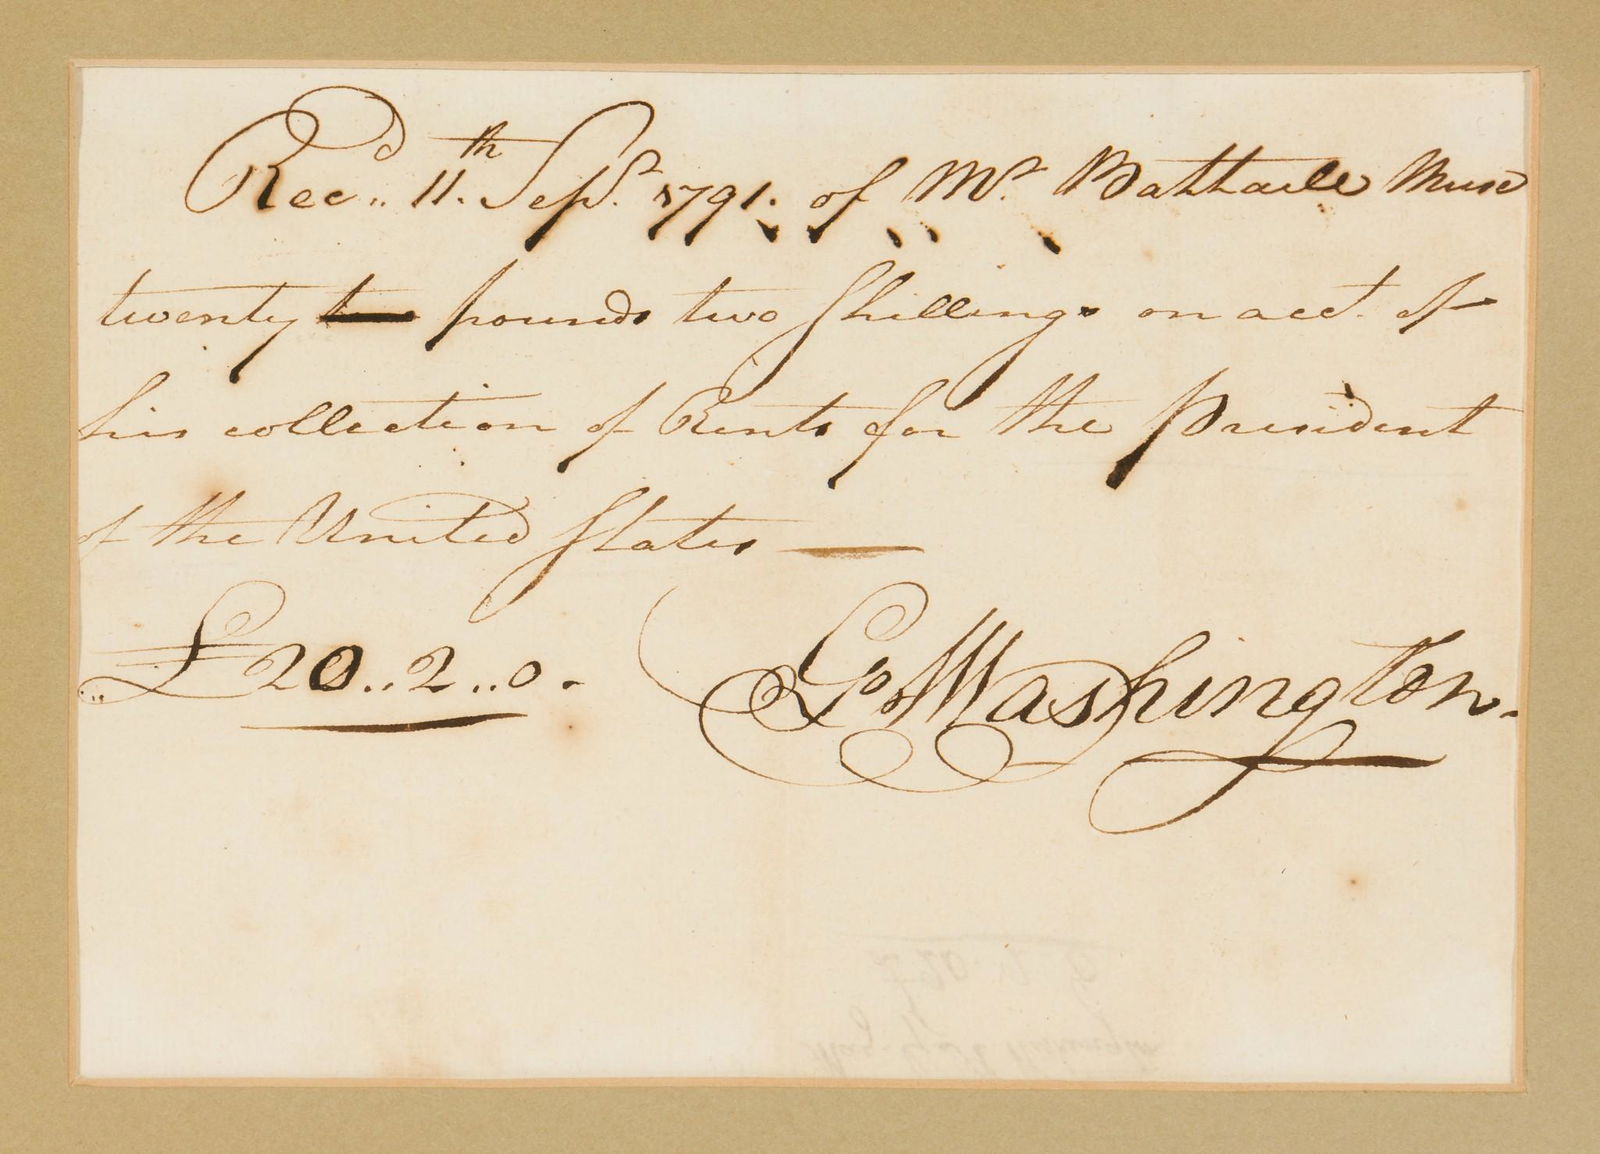 Rec.d 11.th Sep.r 1791. of M.r Battaile Muse
twenty pounds two Shillings on acc.t of
his collection of Rents for the President
of the United States —
£20..2..0.
Go Washington.